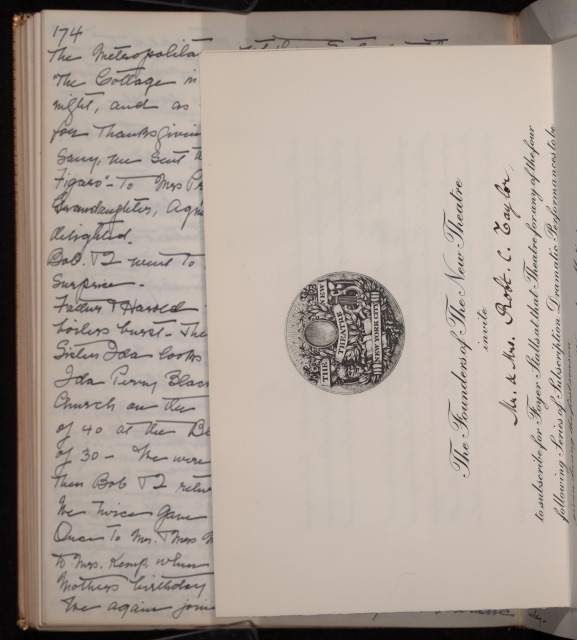 174
The Metropolita
The Cottage in
night, and as
for Thanksgivin
Sorry, we sent
Figaro" - to Mrs
Grandaughter, Agn
delighted.
Bob. & I went to
Surprise -
Father & Harold
boilers burst - The
Sister Ida looks
Ida Perny Blac
Church on the
of 40 at the Bl
of 30 - We were
then Bob & I retu
We twice gave
Once to Mr. & Mrs
to Mrs. Kemp, when
Mothers birthday
We again join
The Founders of The New Theatre
invite
Mr. & Mrs. Robt. C. Taylor
to subscribe for Foyer Stalls at that Theatre for any of the four
following Series of Subscription Dramatic Performances to be
THE NEW THEATRE
NEW YORK CITY